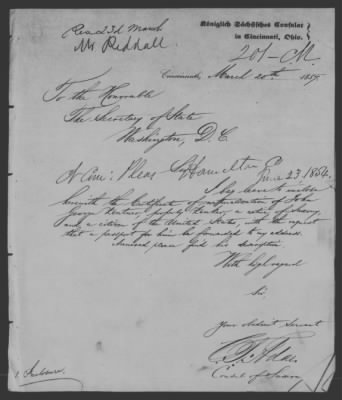 Recd 23d March
Mr Reddall
Königlich Sächsisches Consulat
in Cincinnati, Ohio.
201-M.
Cincinnati, March 20th 185
To the Honorable
The Secretary of State
Washington, D.C.
Sir
Hamilton Co
June 23. 1854.
I beg leave to inclose
herewith the Certificate of naturalization of John
George properly a native of Saxony,
and a citizen of the United States, with the request
that a passport for him be forwarded to my address.
Annexed please find his description.
With high regard
Sir,
Your obedient Servant
Consul of Saxony
1 Inclosure.